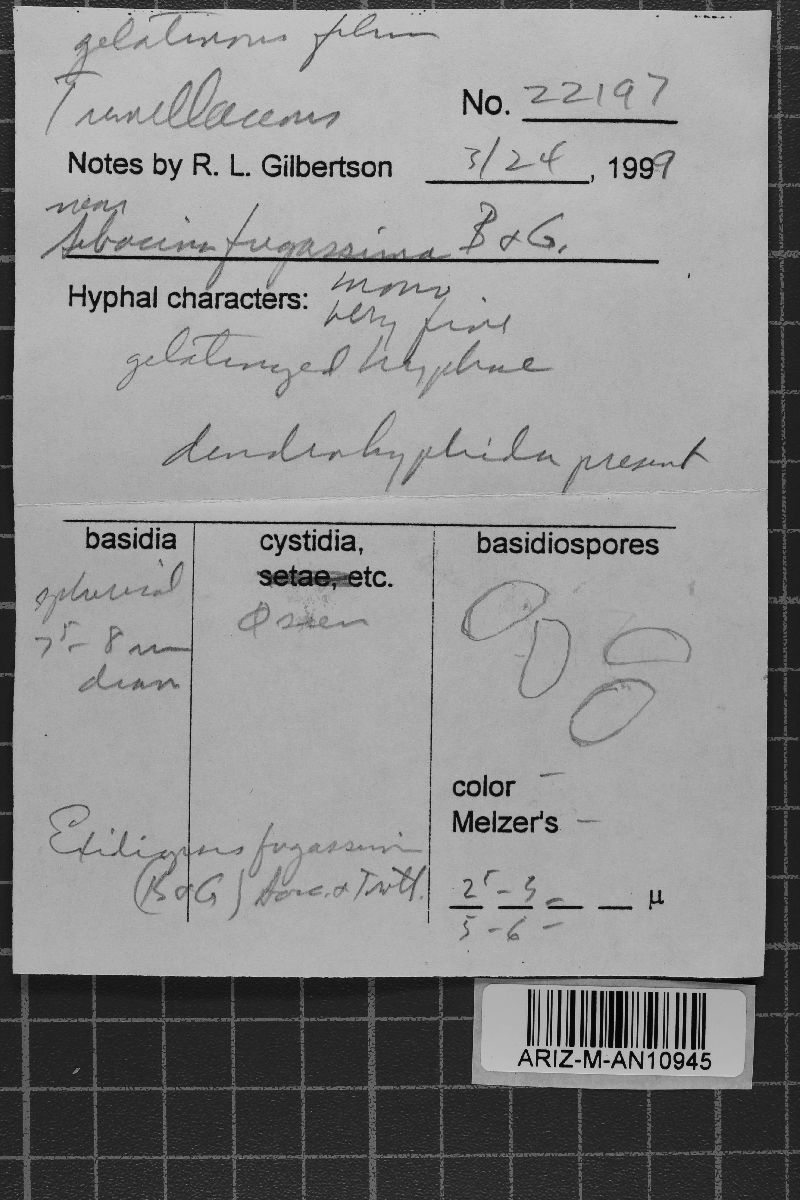 gelatinous film
Tremellaceous
No. 22197
Notes by R. L. Gilbertson 3/24, 1999
near
Sebacina fugassima B & G.
Hyphal characters: mono
very fine
gelatinized hyphae
dendrohyphidia present
basidia
cystidia,
setae, etc.
basidiospores
spherical
7⁵- 8
diam
Ø seen
color -
Melzer's -
(B & G)
2⁵ - 3 μ
5 - 6 -
ARIZ-M-AN10945